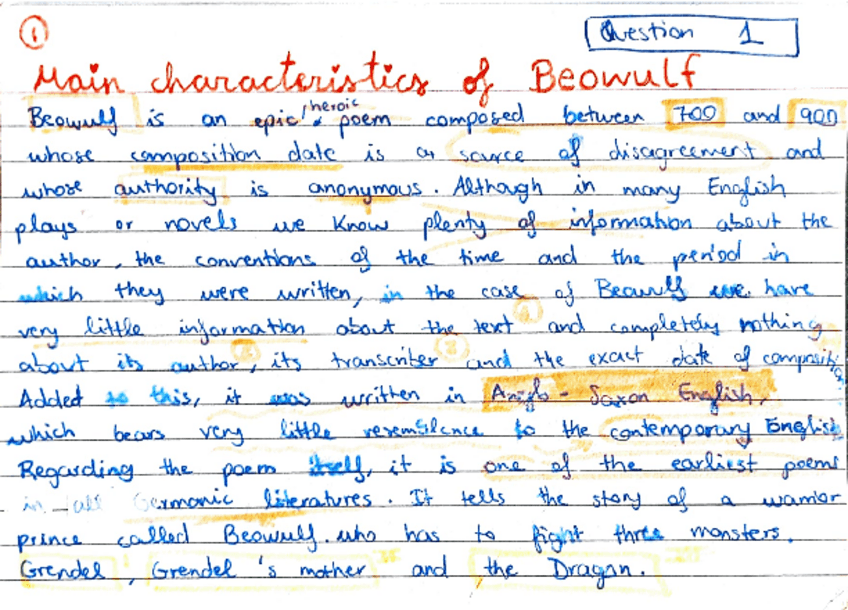 ①
Question 1
Main characteristics of Beowulf
Beowulf is an epic/heroic poem composed between 700 and 900
whose composition date is a source of disagreement and
whose authority is anonymous. Although in many English
plays or novels we know plenty of information about the
author, the conventions of the time and the period in
which they were written, in the case of Beowulf we have
very little information about the text ① and completely nothing
about its author ②, its transcriber ③ and the exact date of composition.
Added to this, it was written in Anglo-Saxon English,
which bears very little resemblence to the contemporary English.
Regarding the poem itself, it is one of the earliest poems
in all Germanic literatures. It tells the story of a warrior
prince called Beowulf who has to fight three monsters.
Grendel, Grendel's mother and the Dragon.